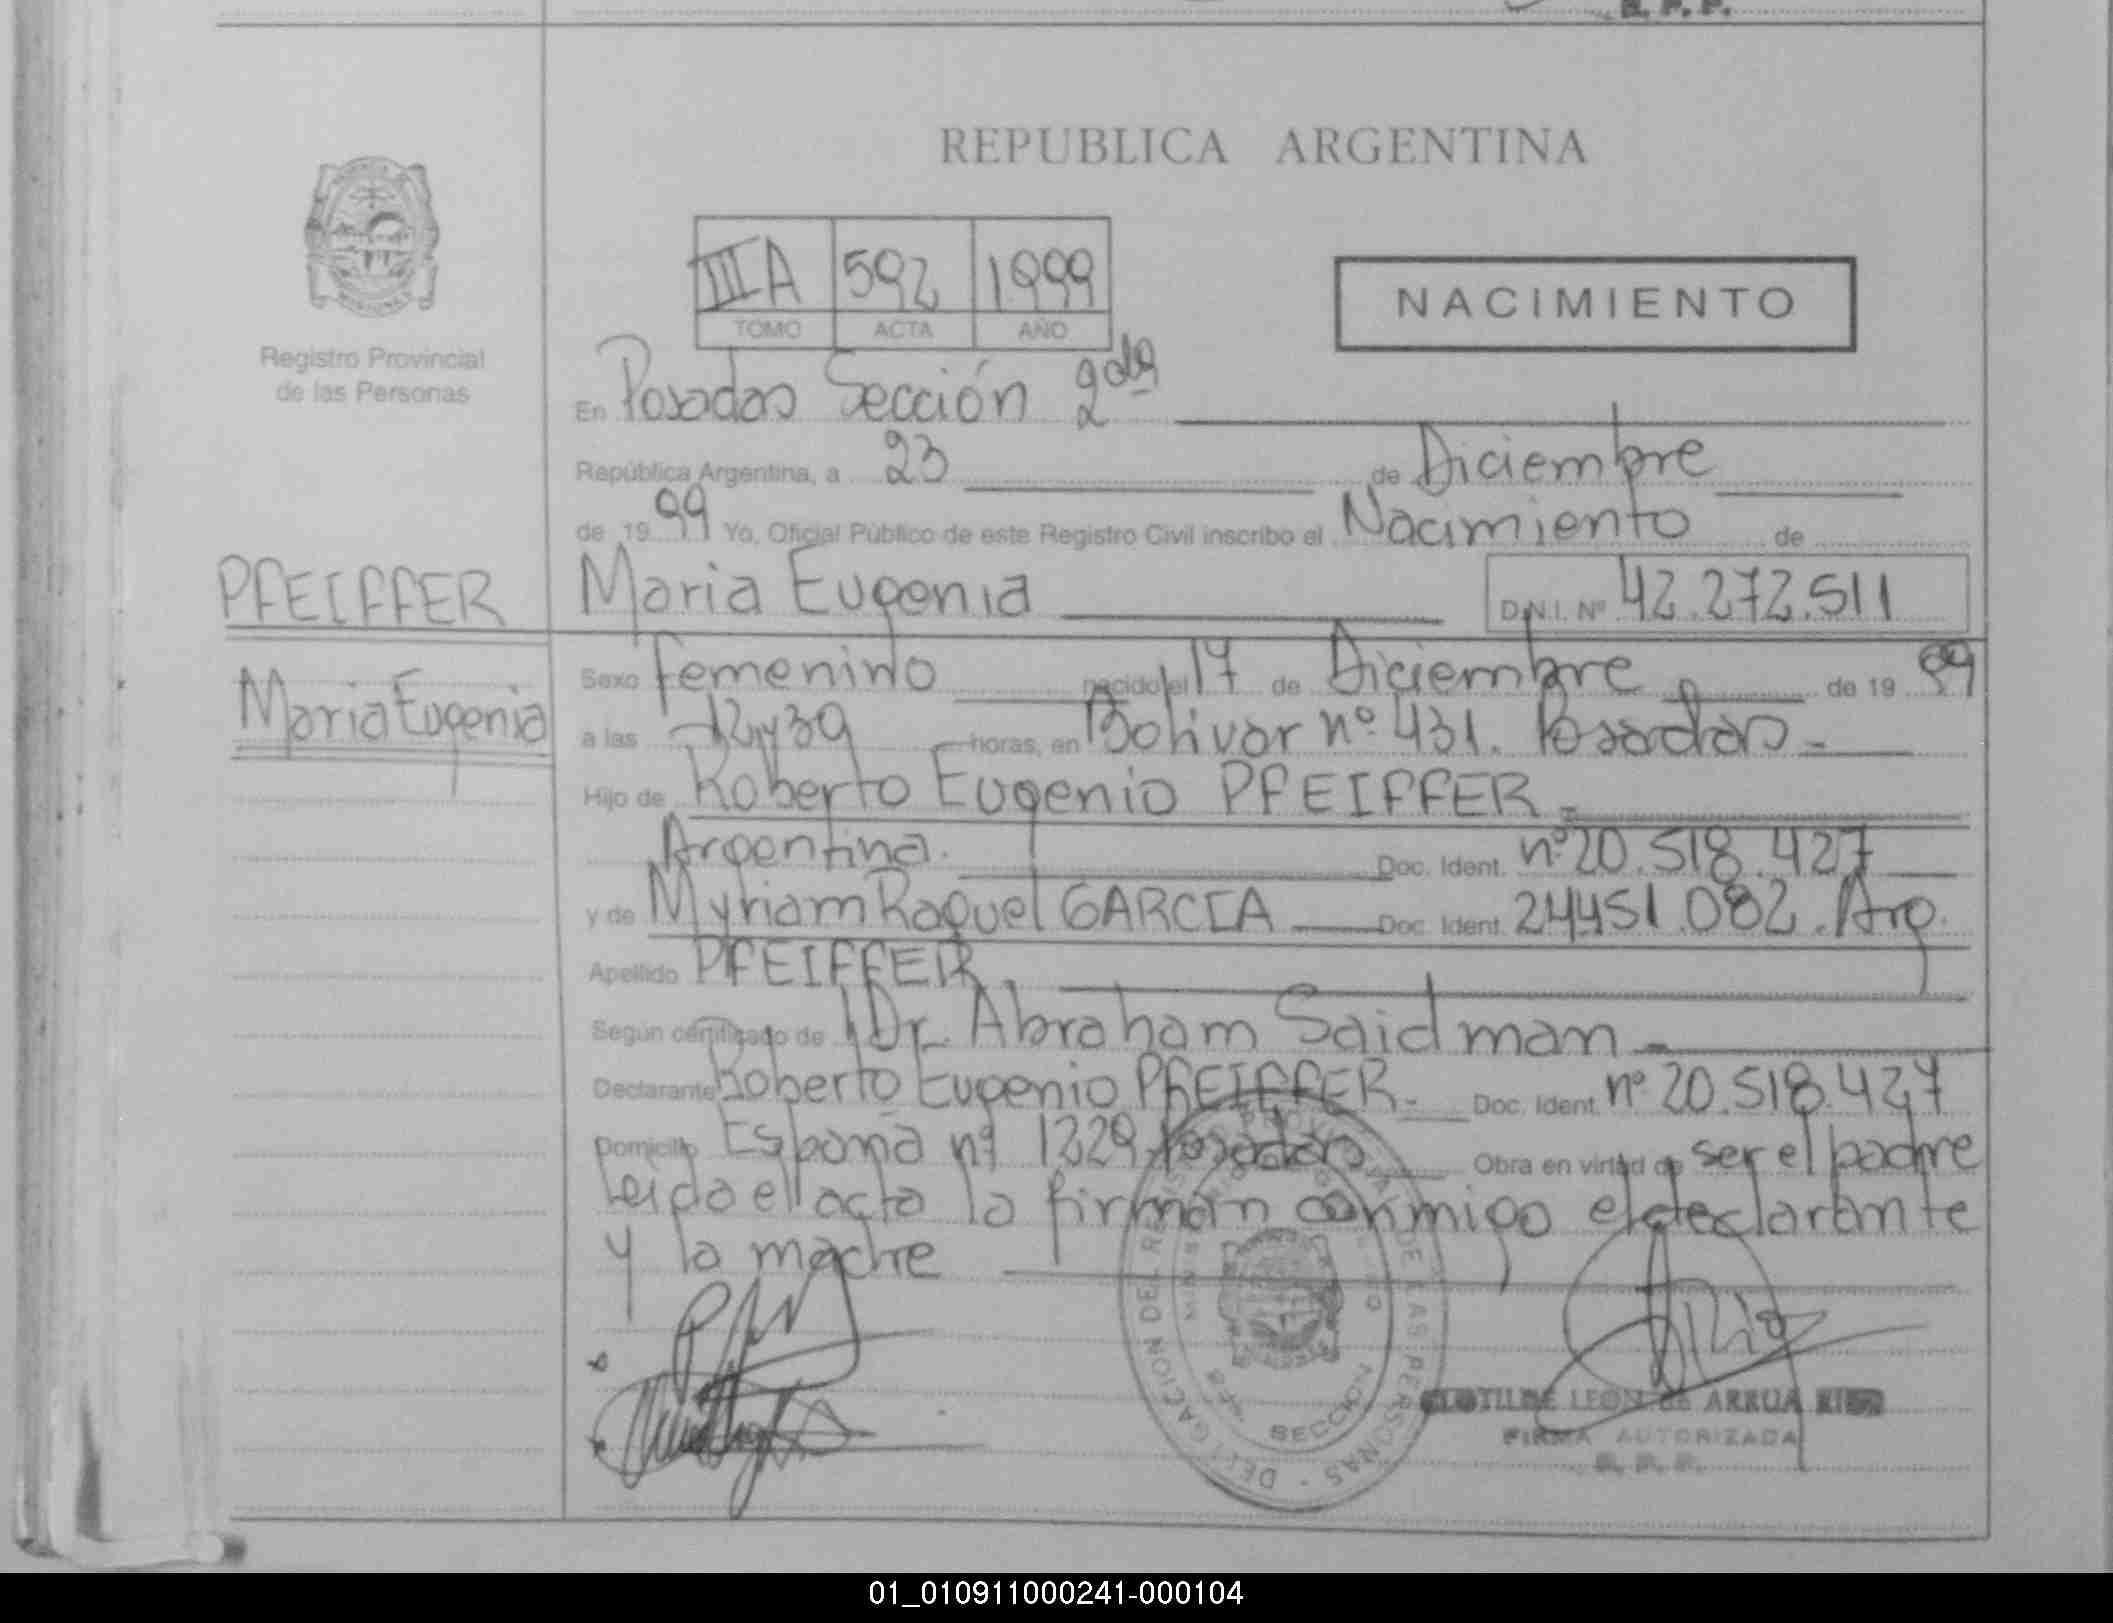 R. P. P.
REPUBLICA ARGENTINA
III A 592 1999
TOMO ACTA AÑO
NACIMIENTO
Registro Provincial
de las Personas
En Posadas Sección 2da
República Argentina, a 23 de Diciembre
de 1999 Yo, Oficial Público de este Registro Civil inscribo el Nacimiento de
PFEIFFER
Maria Eugenia D.N.I. Nº 42.272.511
Maria Eugenia
Sexo Femenino nacido el 17 de Diciembre de 1999
a las 12 y 39 horas, en Bolivar nº 431. Posadas.-
Hijo de Roberto Eugenio PFEIFFER.
Argentina. Doc. Ident. nº 20.518.427
y de Myriam Raquel GARCIA Doc. Ident. 24451.082. Arg.
Apellido PFEIFFER
Según certificado de Dr. Abraham Saidman
Declarante Roberto Eugenio PFEIFFER. Doc. Ident. nº 20.518.427
Domicilio España nº 1329 Posadas Obra en virtud de ser el padre
Leido el acta la firman conmigo el declarante
y la madre
DELEGACION DEL REGISTRO PROVINCIAL DE LAS PERSONAS
SECCION
CLOTILDE LEON de ARRUA
FIRMA AUTORIZADA
R. P. P.
01_010911000241-000104